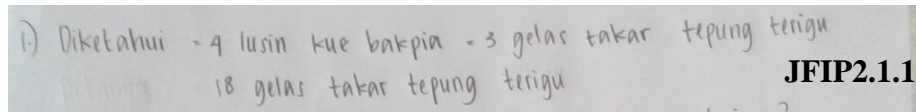 1.) Diketahui = 4 lusin kue bakpia = 3 gelas takar tepung terigu
18 gelas takar tepung terigu
JFIP2.1.1